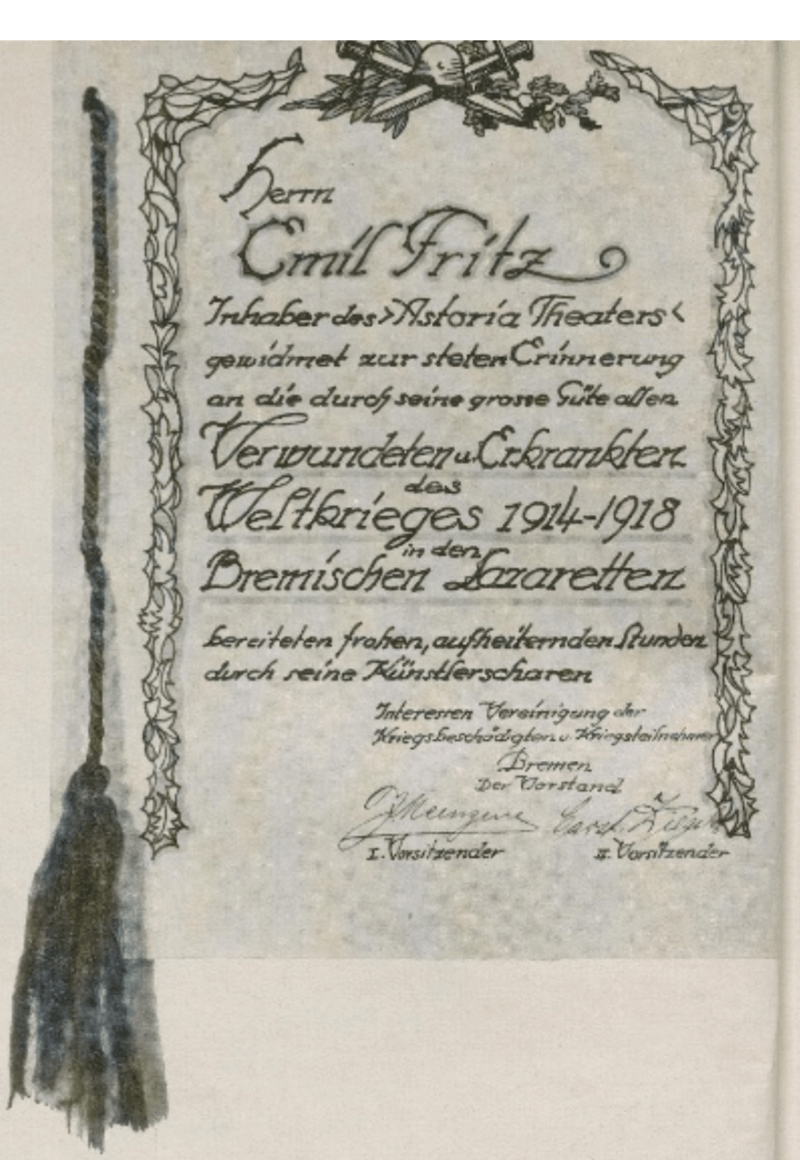 Herrn
Emil Fritz
Inhaber des >Astoria Theaters<
gewidmet zur steten Erinnerung
an die durch seine grosse Güte allen
Verwundeten u. Erkrankten
des
Weltkrieges 1914-1918
in den
Bremischen Lazaretten
bereiteten frohen, aufheiternden Stunden
durch seine Künstlerscharen
Interessen Vereinigung der
Kriegsbeschädigten u. Kriegsteilnehmer
Bremen
Der Vorstand
I. Vorsitzender II. Vorsitzender